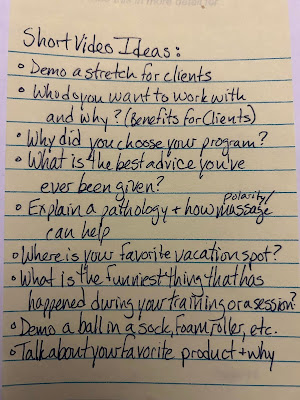 Short Video Ideas:
• Demo a stretch for clients
• Who do you want to work with
and why? (Benefits for Clients)
• Why did you choose your program?
• What is the best advice you've
ever been given?
polarity/
• Explain a pathology + how massage
can help
• Where is your favorite vacation spot?
• What is the funniest thing that has
happened during your training or a session?
• Demo a ball in a sock, foam roller, etc.
• Talk about your favorite product + why